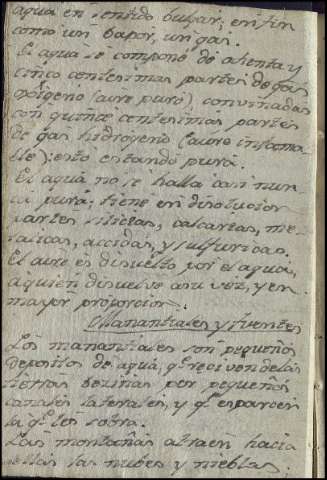 agua en sentido bulgar; en fin
como un bapor, un gas.
El agua se compone de ochenta y
cinco centesimas partes de gas
oxigeno (aire puro), convinadas
con quince centesimas partes
de gas hidrogeno (aire inflama
ble); esto estando pura.
El agua no se halla casi nun
ca pura; tiene en disolucion
partes siliceas, calcareas, me
talicas, accidas, y sulfuricas.
El aire es disuelto por el agua,
a quien disuelve a su vez, y en
mayor proporcion.
Manantiales y fuentes
Los manantiales son pequeños
depositos de agua, qe. reciven de las
tierras becinas por pequeños
canales laterales, y qe. esparcen
la qe. les sobra.
Las montañas atraen hacia
ellas las nubes y nieblas.